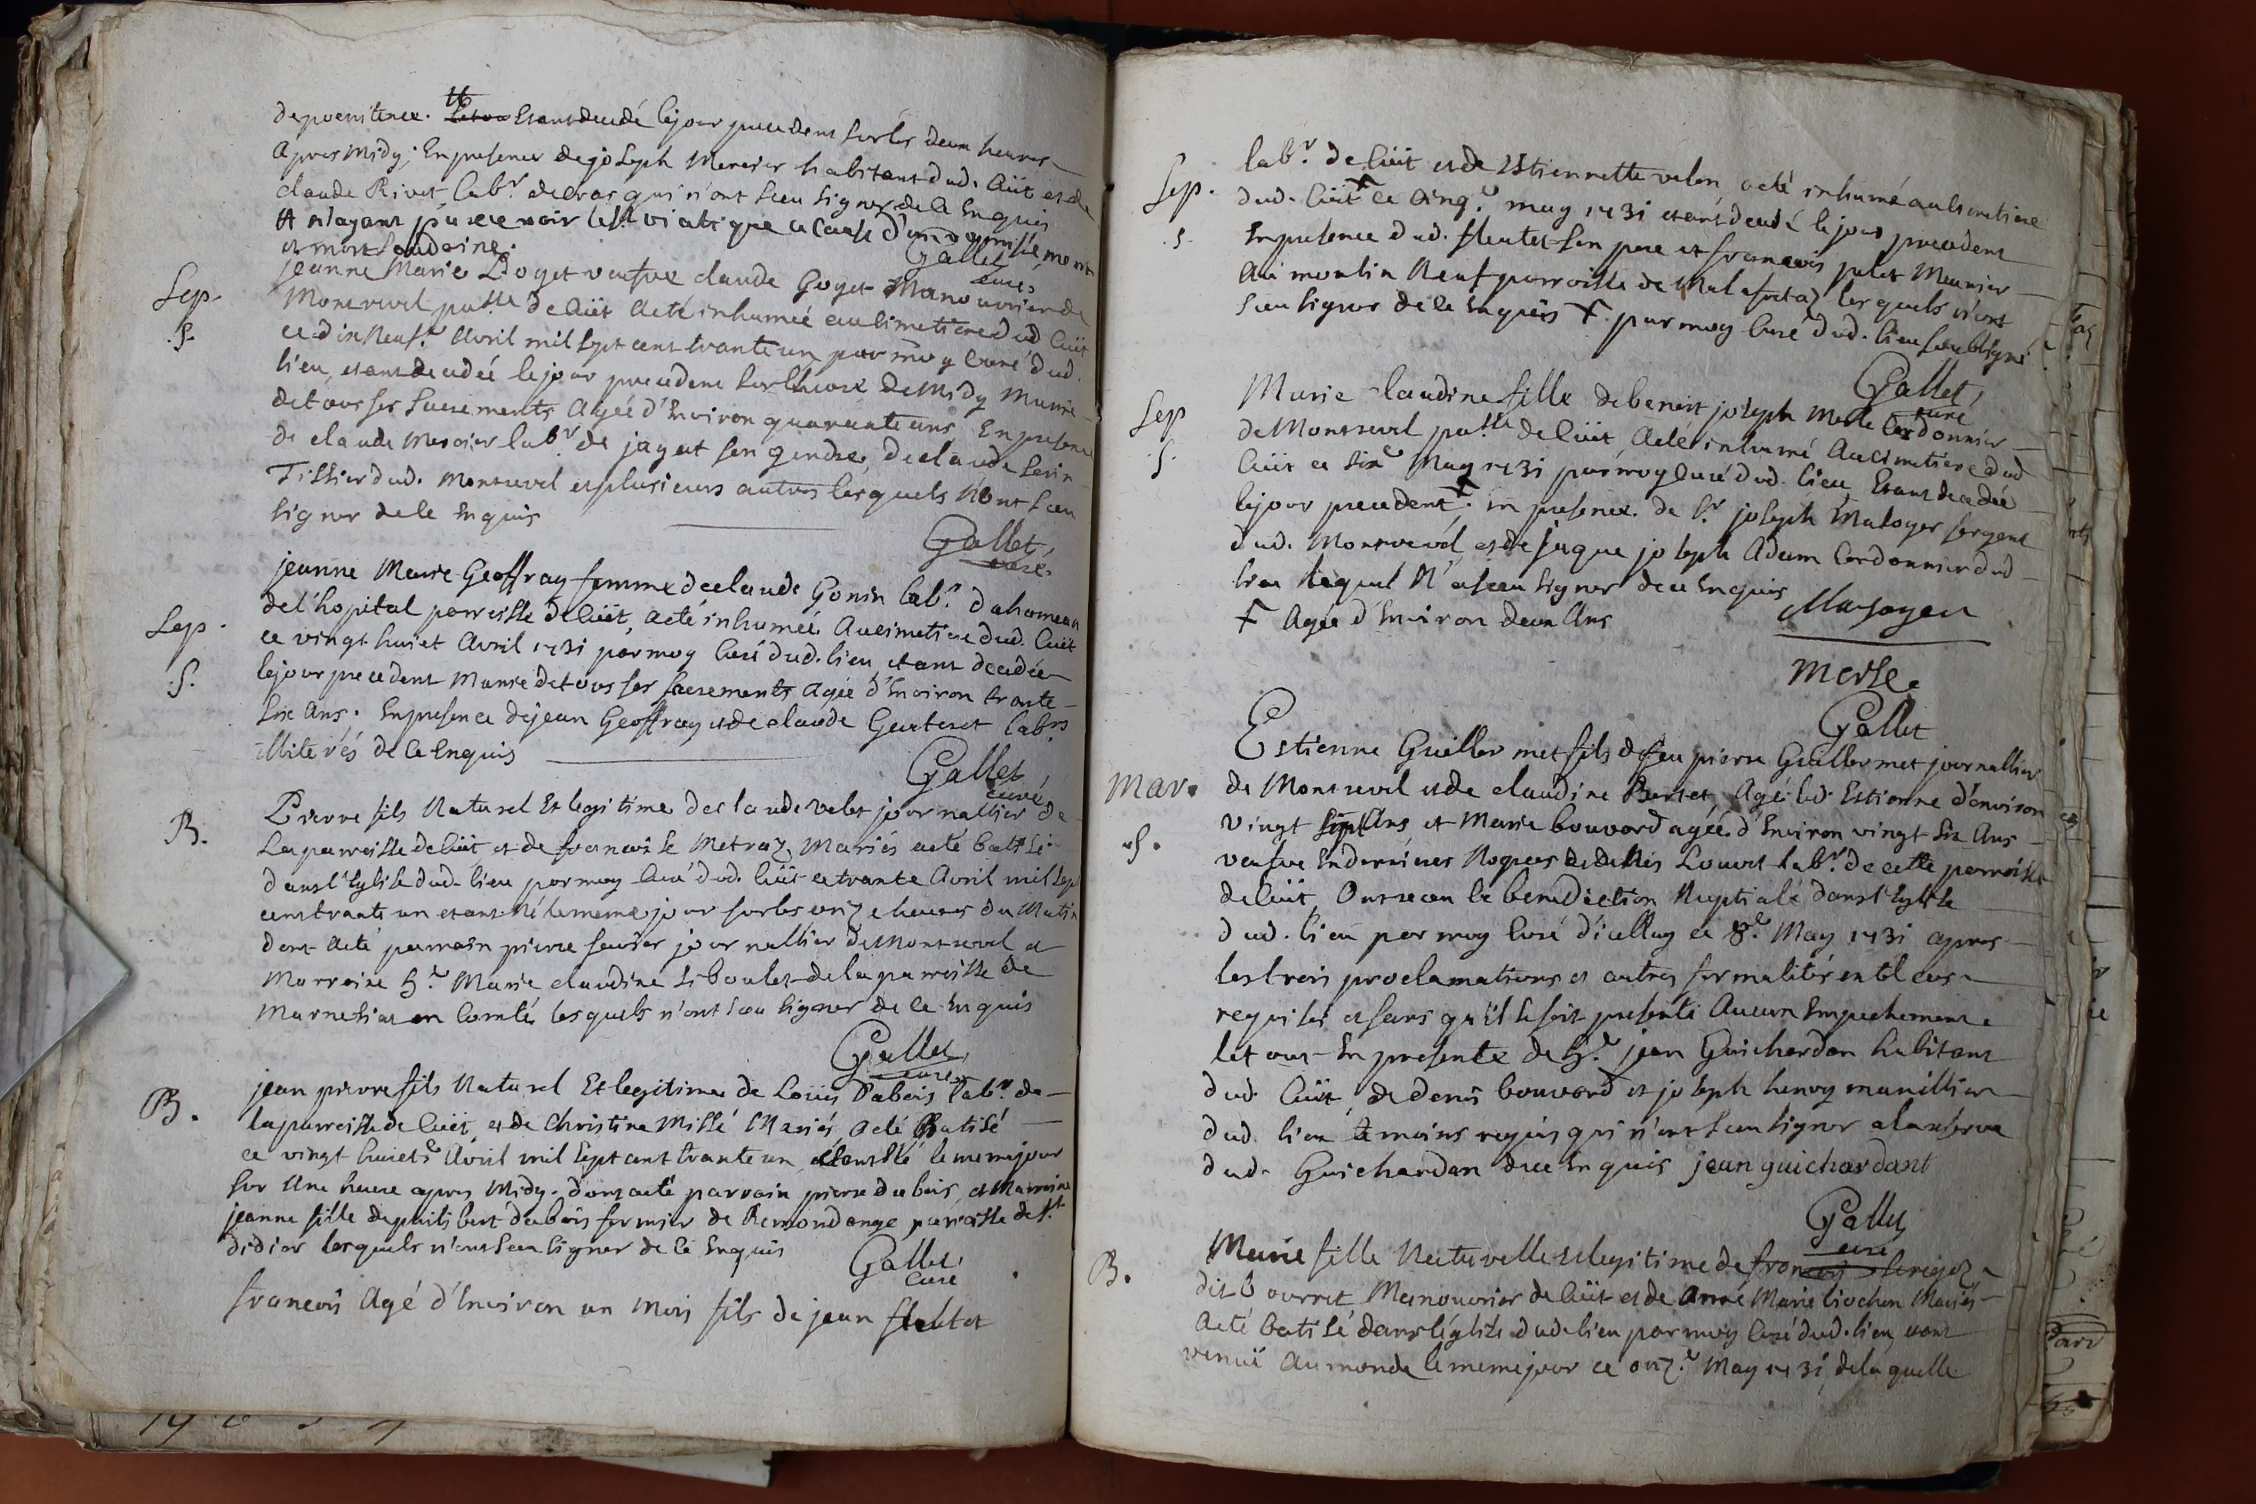 de poenitence. # Estant decedé le jour precedent sur les deux heures
Apres Midy; En presence de joseph Mercier habitant dud. Cüit et de
claude Rivet lab.r de cras qui n'ont sceu signer de ce Enquis
# n'ayant pu recevoir le st viatique a cause d'un
et mort soudaine.
Gallet
curé
Sep.
.S.
jeanne Marie Doget veufve claude Goyet Manouvrier de
Montrevel pa.sse de Cüit a eté inhumée au cimetiere dud Cüit
ce dix neuf.e Avril mil sept cent trante un par moy Curé dud.
lieu, estant decedée le jour precedent sur l'heure de Midy Munie
de tous ses sacrements Agée d'Environ quarante ans, En presence
de claude Mercier lab.r de jayat son gendre, de claude Serin
Tissier dud. Montrevel et plusieurs autres lesquels N'ont sceu
signer de ce Enquis
Gallet,
curé
Sep.
.S.
jeanne Marie Geoffray femme de claude Gonin lab.r d'ahomeau
de l'hopital parroisse de Cüit, a eté inhumée Au cimetiere dud. Cüit
ce vingt huict Avril 1731 par moy Curé dud. lieu, etant decedée
le jour precedent Munie de tous ses sacrements Agée d'Environ trante
six Ans. En presence de jean Geoffray et de claude Guiteret lab.rs
illiterés de ce Enquis
Gallet,
curé
B.
Pierre fils Naturel Et legitime de claude velet journallier de
La parroisse de Cüit et de francoise Metraz Mariés a eté battisé
dans l'Eglise dud. lieu par moy Curé dud. Cüit ce trante Avril mil sept
cent trante un etant Né le meme jour sur les onze heures du Matin
dont a eté parrain pierre journallier de Montrevel et
Marraine h.te Marie claudine siboulet de la parroisse de
Marnesia en Comté, lesquels n'ont sceu signer de ce Enquis
Gallet,
curé
B.
jean pierre fils Naturel Et legitime de Loüis Dubois lab.r de
la parroisse de Cüit, et de Christine Missé Mariés, a eté Batisé
ce vingt huict.e Avril mil sept cent trante un, le meme jour
sur Une heure apres Midy. dont a eté parrain pierre dubois, et Marraine
jeanne fille de philibert dubois fermier de Remondange parroisse de st
didier lesquels n'ont sceu signer de ce Enquis
Gallet
Curé
francois Agé d'Environ un Mois fils de jean fleutet
Sep.
.S.
lab.r de Cüit et de Estiennette velon, a eté inhumé au cimetiere
dud. Cüit ce cinq.e may 1731 etant decedé le jour precedent
En presence dud. fleutet son pere et francois pelet Meunier
Au moulin Neuf parroisse de Malafretaz lesquels n'ont
sceu signer de ce Enquis par moy Curé dud. lieu soubsigné
Gallet,
curé
Sep
.S.
Marie claudine fille de benoit joseph Merle Cordonnier
de Montrevel pa.sse de Cüit, a eté inhumé Au cimetiere dud
Cüit ce six.e May 1731 par moy Curé dud. lieu, Etant decedée
le jour precedent +. en presence de S.r joseph Matoyer sergent
dud. Montrevel, et de jaque joseph Adam Cordonnier dud
lieu lequel N'a sceu signer de ce Enquis
+ Agée d'Environ deux Ans
Matoyer
merle.
Gallet
Mar.
.S.
Estienne Guillermet fils de feu pierre Guillermet journallier
de Montrevel et de claudine Burtet, Agé led. Estienne d'environ
vingt sept Ans, et Marie bouvard agée d'Environ vingt six Ans
veufve En dernieres Nopces de denis Louvet lab.r de cette parroisse
de Cüit, Ont receu la benediction Nuptiale dans l'Eglise
dud. lieu par moy Curé d'icelluy ce 8.e May 1731 apres
les trois proclamations et autres formalités en tel cas
requises et sans qu'il se soit presenté Aucun Empechement.
le tout En presence de h.te jean Guichardan habitant
dud. Cüit, de denis bouvard et joseph henry manillier
dud. lieu temoins requis qui n'ont sceu signer a la reserve
dud. Guichardan de ce Enquis jean guichardant
Gallet
curé
B.
Marie fille Naturelle et legitime de francois
dit bourret Manouvrier de Cüit et de Anne Marie liochon Mariés
a eté batisé dans l'église dud. lieu par moy Curé dud. lieu, etant
venuë Au monde le meme jour ce onz.e May 1731, de laquelle